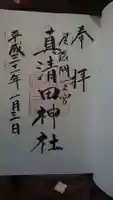 奉拝
尾張國一之宮
真清田神社
平成二十一年一月三日